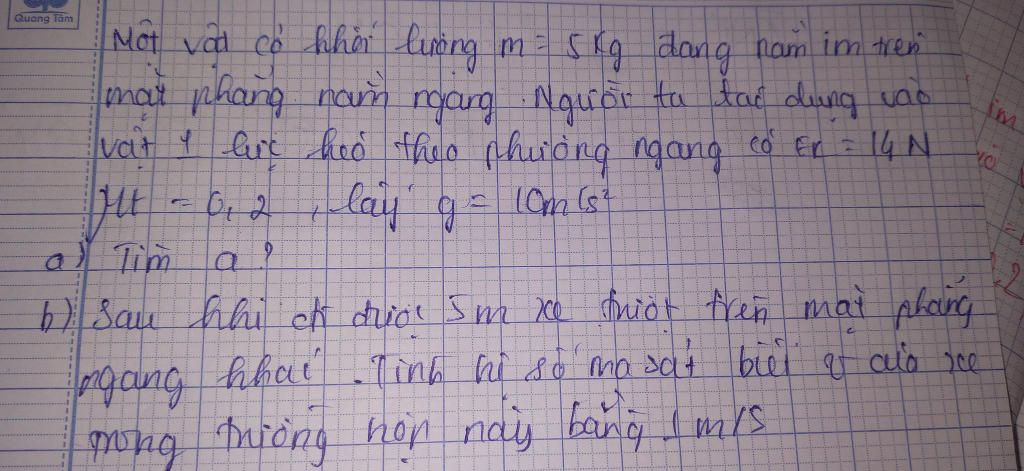 Quang Tâm
Một vật có khối lượng m = 5 Kg đang nằm im trên
mặt phẳng nằm ngang. Người ta tác dụng vào
vật 1 lực kéo theo phương ngang có Fk = 14 N
μt = 0,2, lấy g = 10m/s²
a) Tìm a?
b) Sau khi đi được 5m xe trượt trên mặt phẳng
ngang khác. Tính hệ số ma sát biết của xe
trong trường hợp này bằng 1 m/s